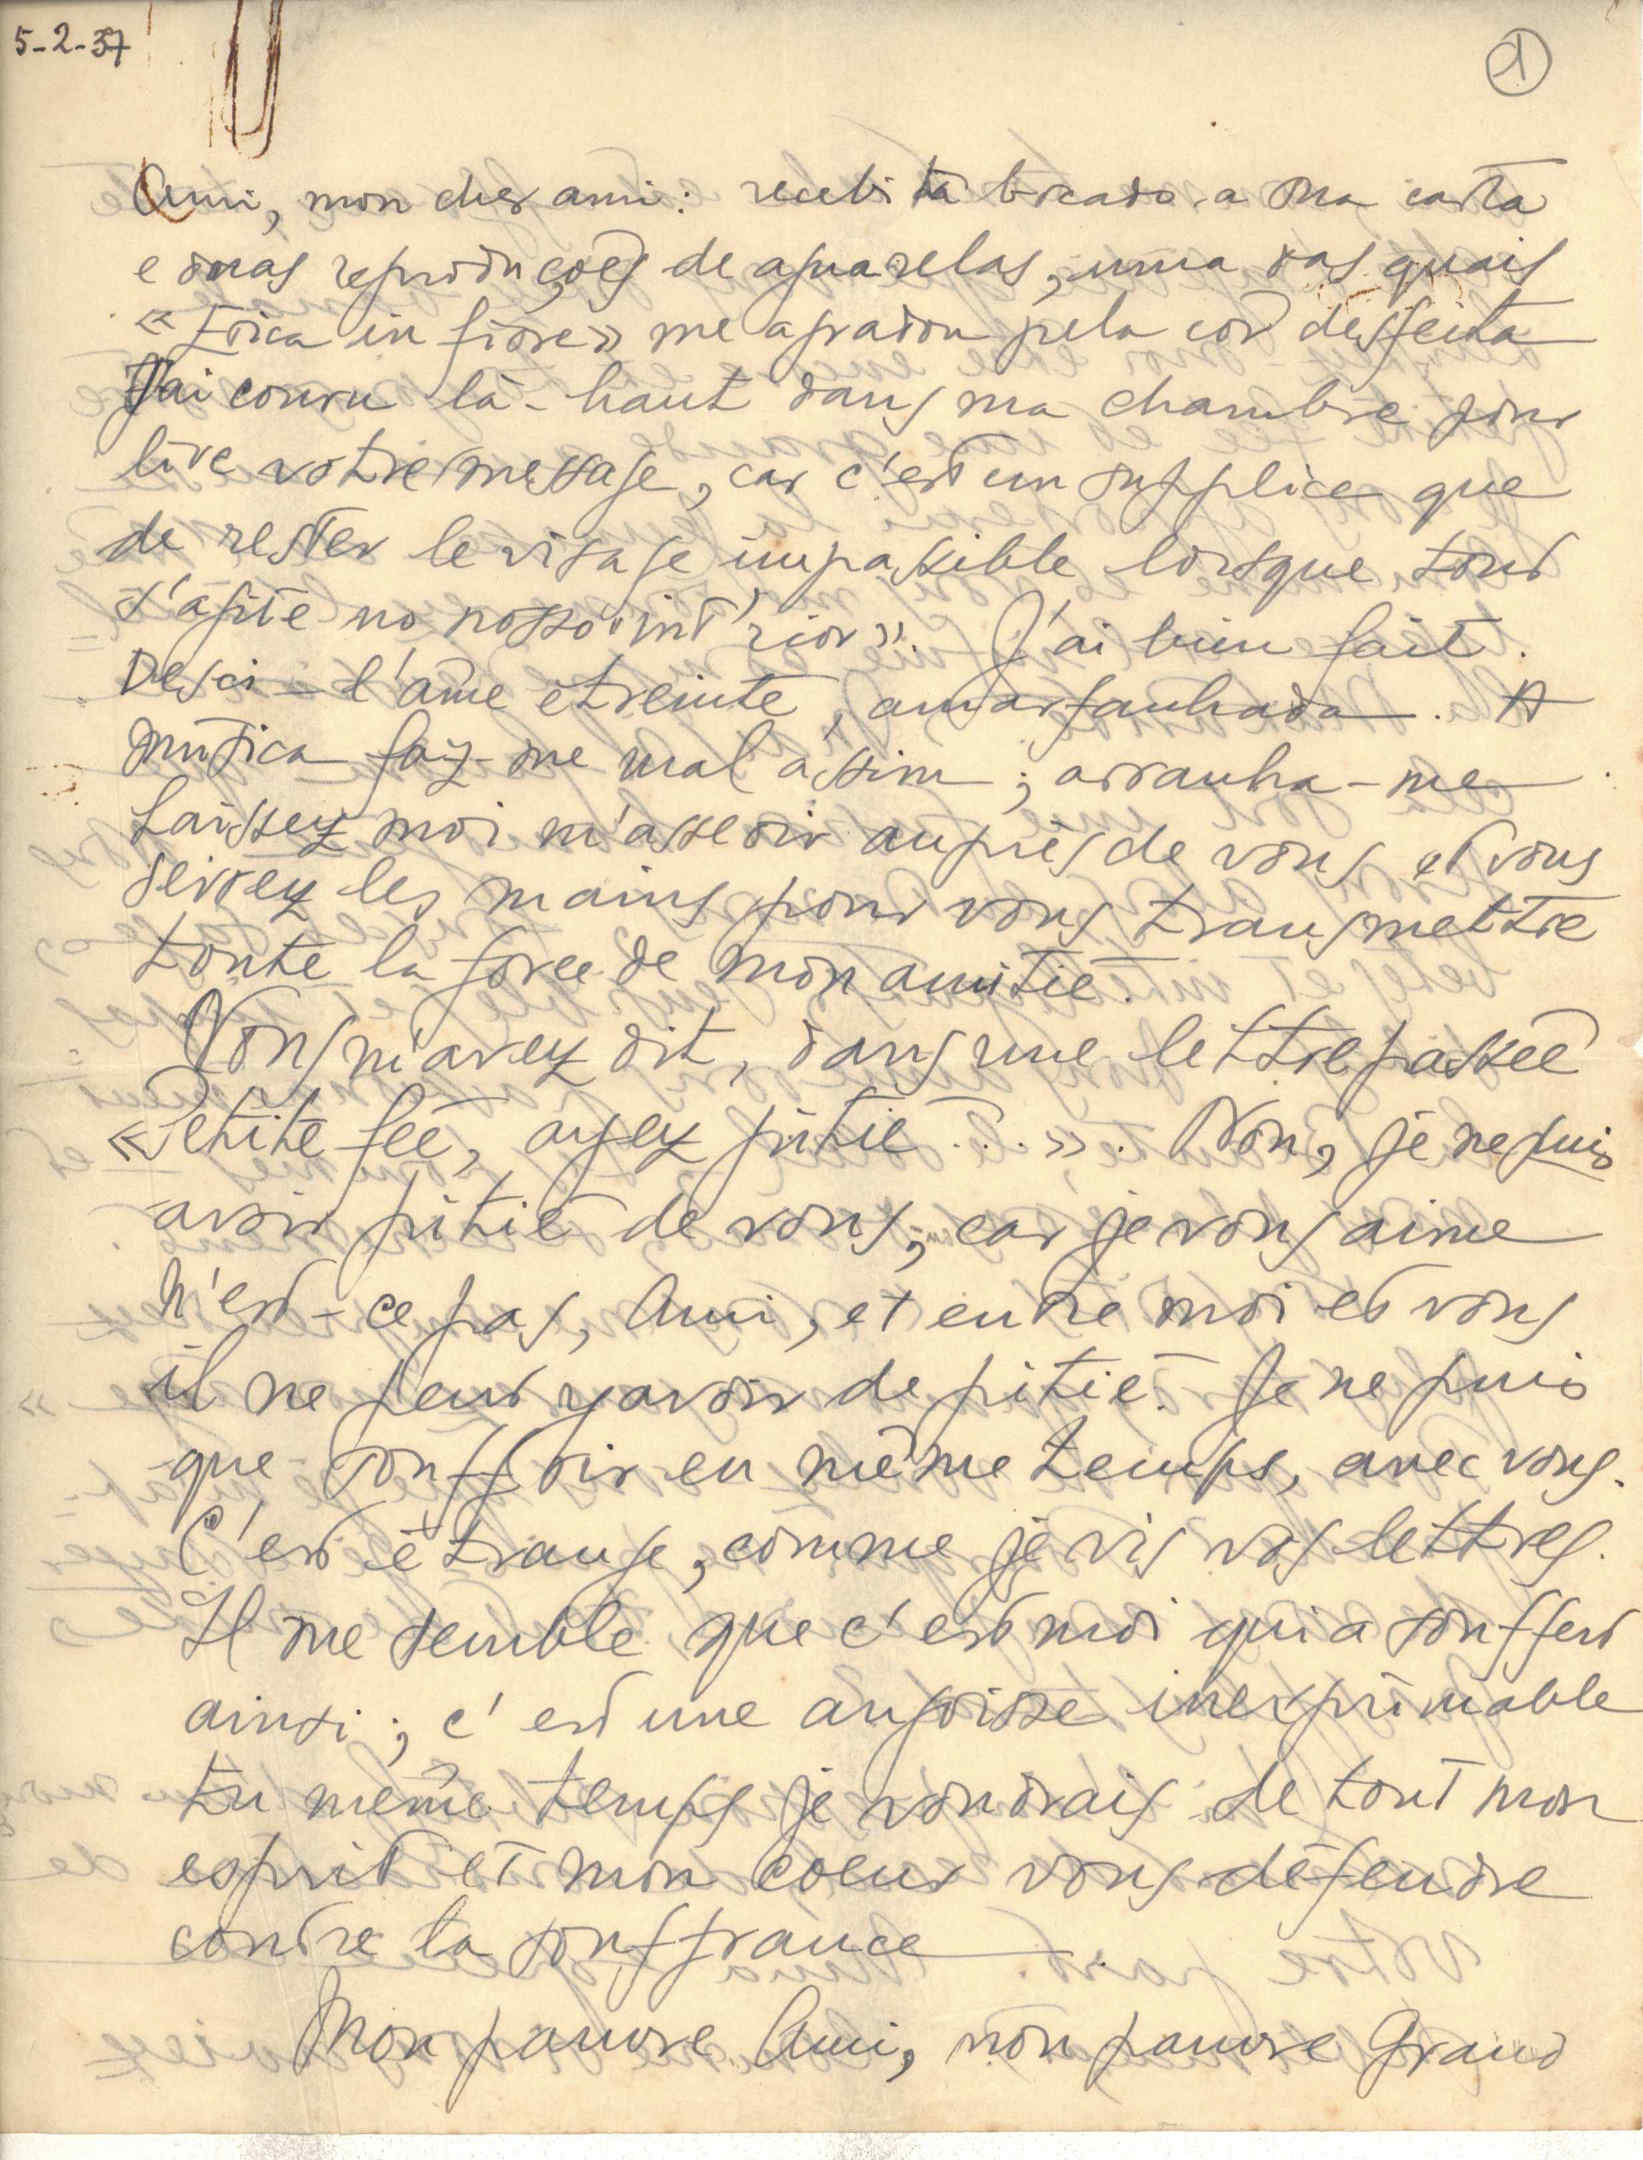 5-2-37
1
Ami, mon cher ami: recebi há bocado a sua carta
e duas reproduções de aguarelas, uma das quais
« Erica in fiore » me agradou pela cor desfeita
J'ai couru là-haut dans ma chambre pour
lire votre message, car c'est un supplice que
de rester le visage impassible lorsque tout
s'agite no nosso "int'rior". J'ai bien fait.
Desci - l'âme étreinte, amarfanhada. A
musica faz-me mal assim; arranha-me
Laissez moi m'asseoir auprès de vous et vous
serrez les mains pour vous transmettre
toute la force de mon amitié.
Vous m'avez dit, dans une lettre passée
« Petite fée, ayez pitié... ». Non, je ne puis
avoir pitié de vous, car je vous aime
n'est-ce pas, Ami, et entre moi et vous
il ne peut y avoir de pitié. Je ne puis
que souffrir en même temps, avec vous.
C'est étrange, comme je vis vos lettres.
Il me semble que c'est moi qui a souffert
ainsi; c'est une angoisse inexprimable
En même temps je voudrais de tout mon
esprit et mon coeur vous défendre
contre la souffrance.
Mon pauvre Ami, mon pauvre Grand